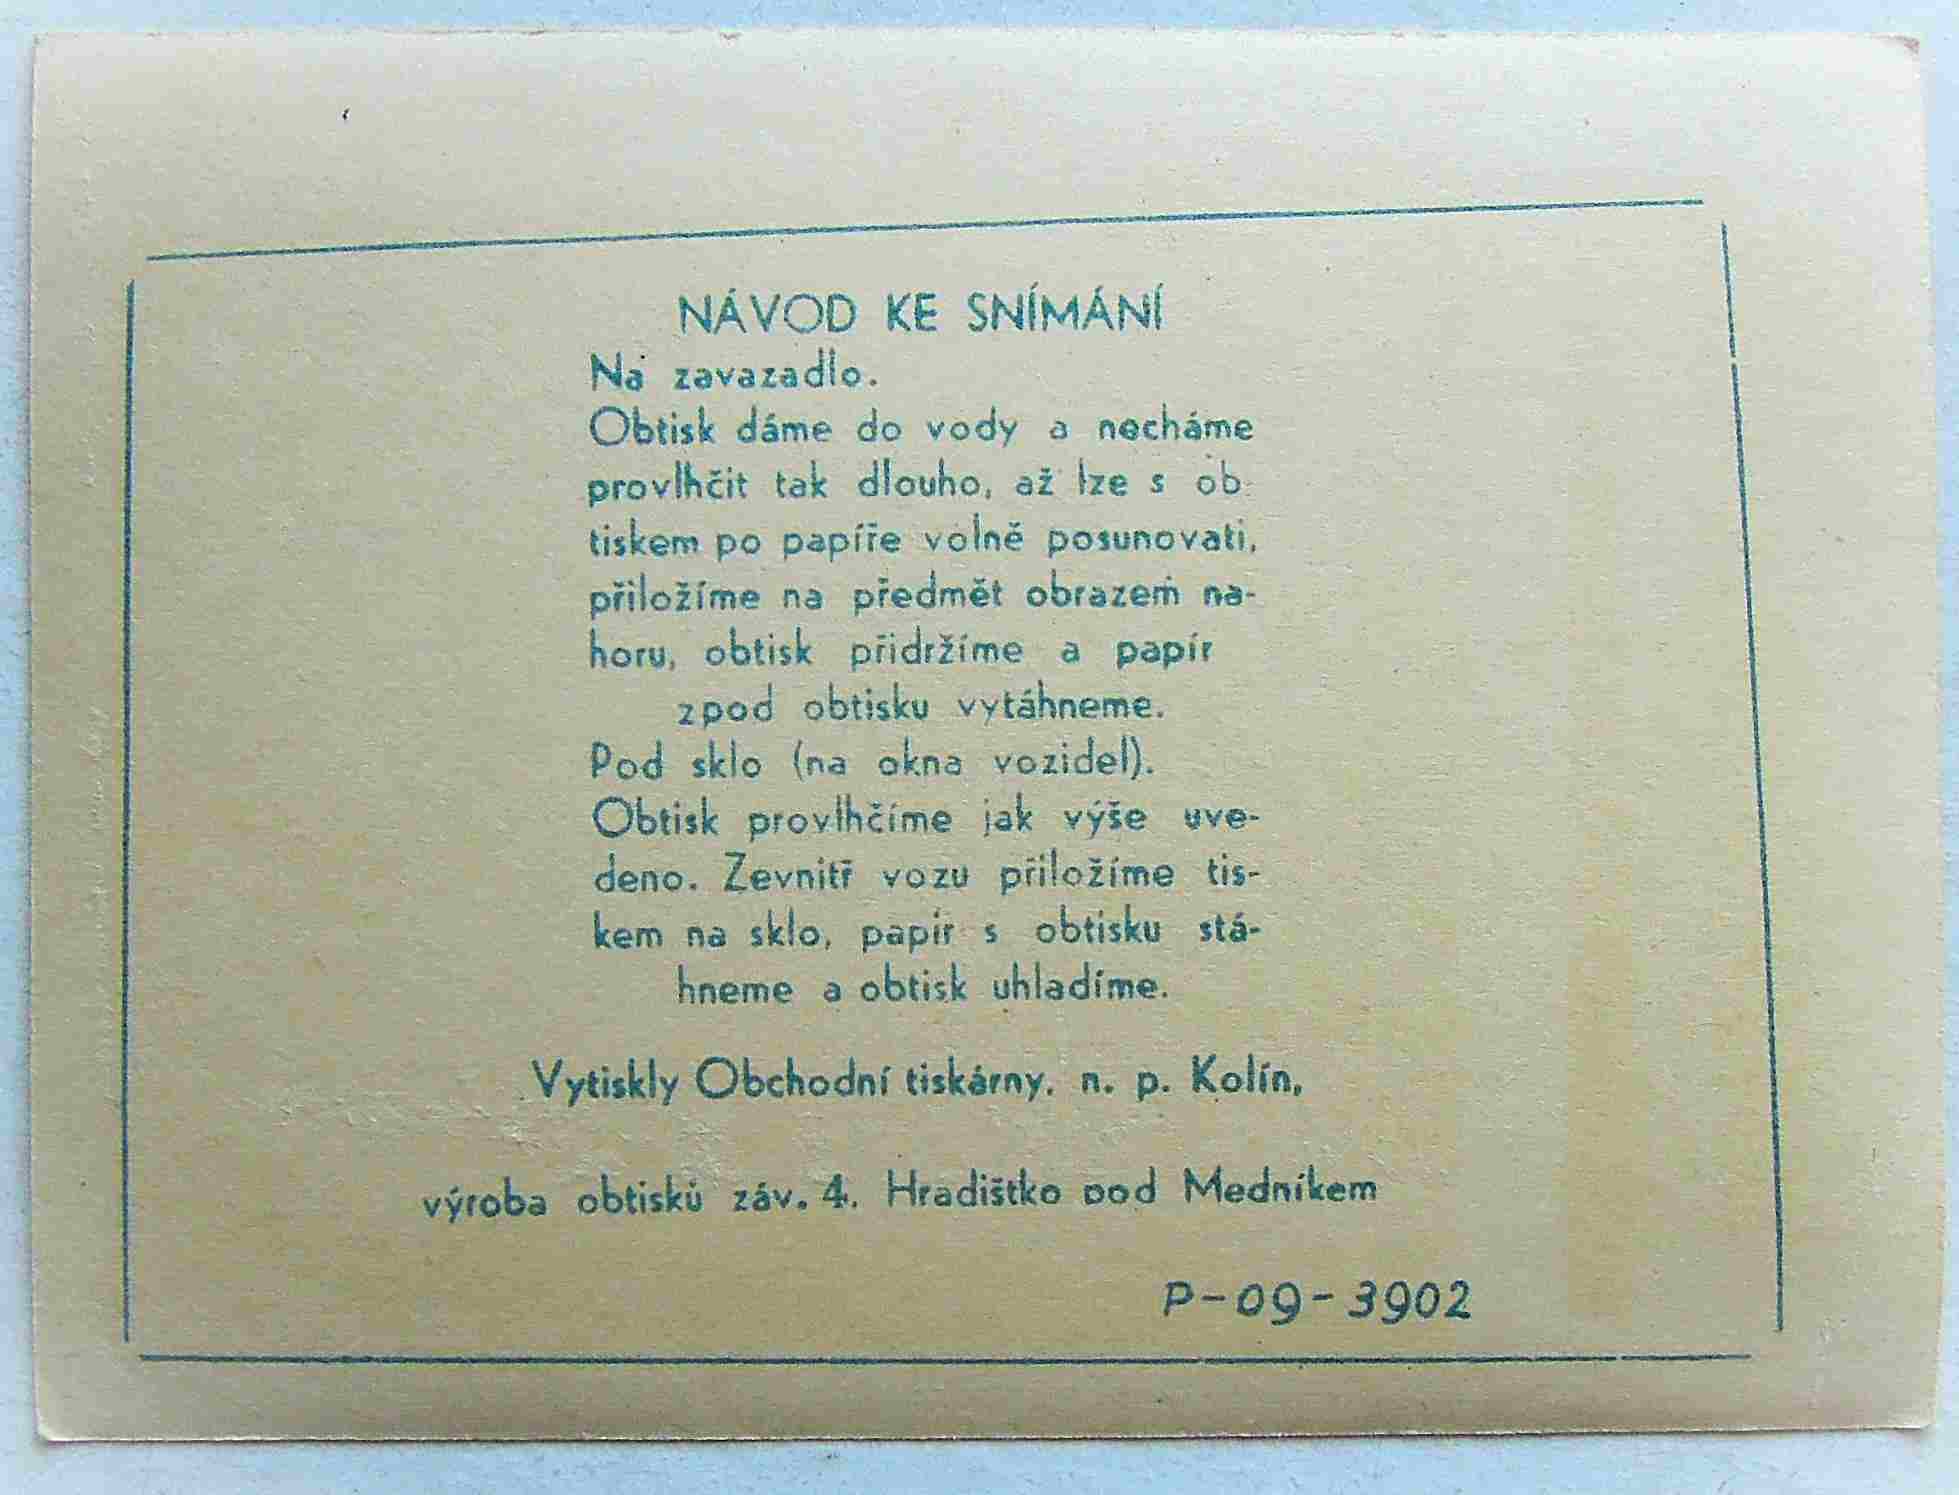 NÁVOD KE SNÍMÁNÍ
Na zavazadlo.
Obtisk dáme do vody a necháme
provlhčit tak dlouho, až lze s ob-
tiskem po papíře volně posunovati,
přiložíme na předmět obrazem na-
horu, obtisk přidržíme a papír
zpod obtisku vytáhneme.
Pod sklo (na okna vozidel).
Obtisk provlhčíme jak výše uve-
deno. Zevnitř vozu přiložíme tis-
kem na sklo, papír s obtisku stá-
hneme a obtisk uhladíme.
Vytiskly Obchodní tiskárny, n. p. Kolín,
výroba obtisků záv. 4. Hradištko pod Medníkem
P-09-3902